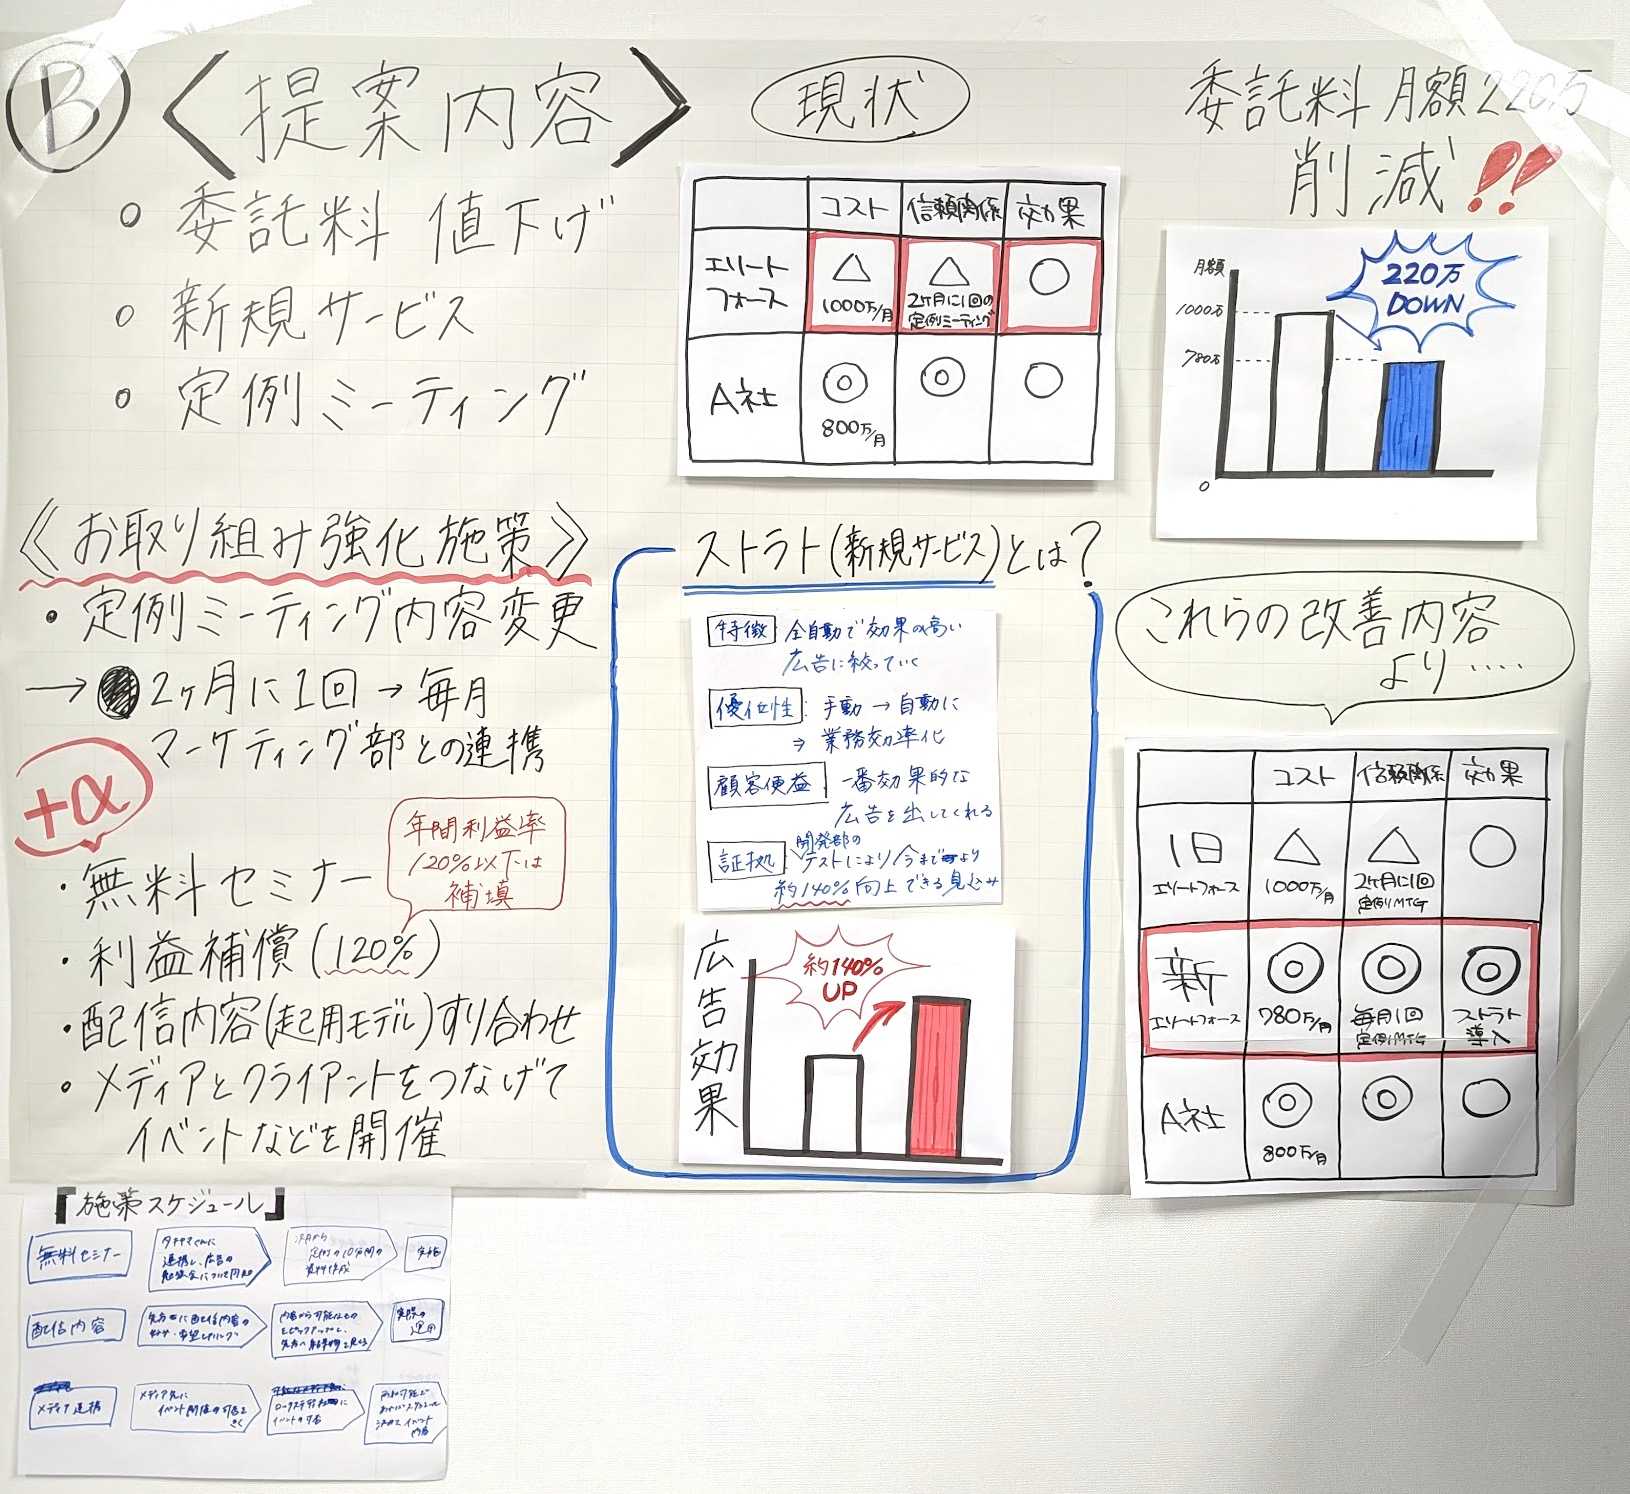 B 〈提案内容〉
。委託料 値下げ
。新規サービス
。定例ミーティング
現状
コスト 信頼関係 効果
エリートフォース △ 1000万/月 △ 2ヶ月に1回の定例ミーティング ○
A社 ◎ 800万/月 ◎ ○
委託料 月額220万
削減!!
月額
1000万
780万
0
220万
DOWN
《お取り組み強化施策》
・定例ミーティング内容変更
→ 2ヶ月に1回→毎月
マーケティング部との連携
+α
・無料セミナー
年間利益率
120%以下は
補填
・利益補償(120%)
・配信内容(起用モデル)すり合わせ
・メディアとクライアントをつなげて
イベントなどを開催
ストラト(新規サービス)とは?
特徴 全自動で効果の高い
広告に絞っていく
優位性: 手動→自動に
⇒業務効率化
顧客便益 一番効果的な
広告を出してくれる
証拠: 開発部の
テストにより今までより
約140%向上できる見込み
広告効果
約140%
UP
これらの改善内容
より……
コスト 信頼関係 効果
旧 エリートフォース △ 1000万/月 △ 2ヶ月に1回 定例MTG ○
新 エリートフォース ◎ 780万/月 ◎ 毎月1回 定例MTG ◎ ストラト導入
A社 ◎ 800万/月 ◎ ○
『施策スケジュール』
無料セミナー
連携し、広告の
配信内容
先方に配信内容の
実際の
運用
メディア連携
メディア先に
イベント開催の可否を
きく
イベントの可否